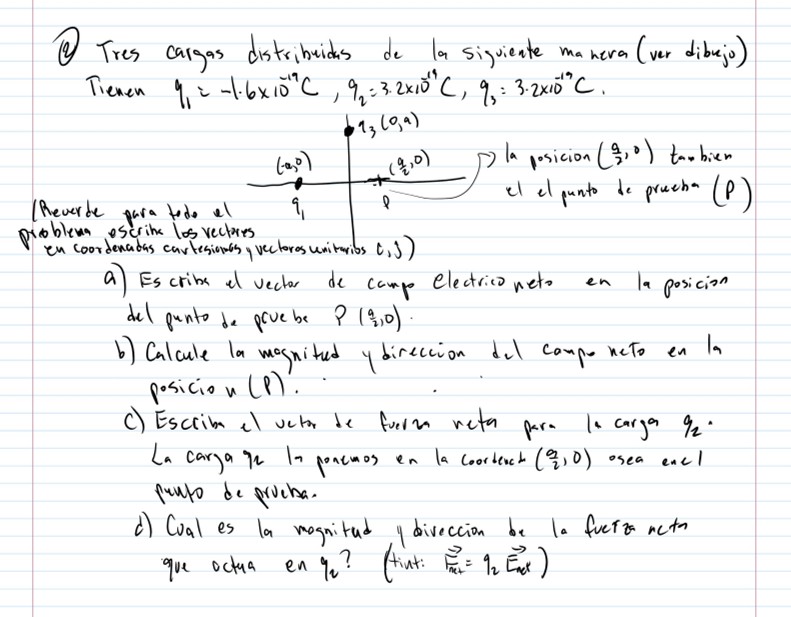 ② Tres cargas distribuidas de la siguiente manera (ver dibujo)
Tienen q₁ = -1.6x10⁻¹⁹C , q₂ = 3.2x10⁻¹⁹C, q₃ = 3.2x10⁻¹⁹C.
q₃ (0,a)
(-a,0)
(a/2,0)
q₁
P
la posicion (a/2,0) tambien
el el punto de prueba (P)
(Recuerde para todo el
problema escriba los vectores
en coordenadas cartesianas y vectores unitarios i,j)
a) Escriba el vector de campo electrico neto en la posicion
del punto de prueba P (a/2,0).
b) Calcule la magnitud y direccion del campo neto en la
posicion (P).
c) Escriba el vector de fuerza neta para la carga q₂.
La carga q₂ la ponemos en la coordenada (a/2,0) osea en el
punto de prueba.
d) Cual es la magnitud y direccion de la fuerza neta
que actua en q₂? (Hint: F⃗net = q₂ E⃗net)